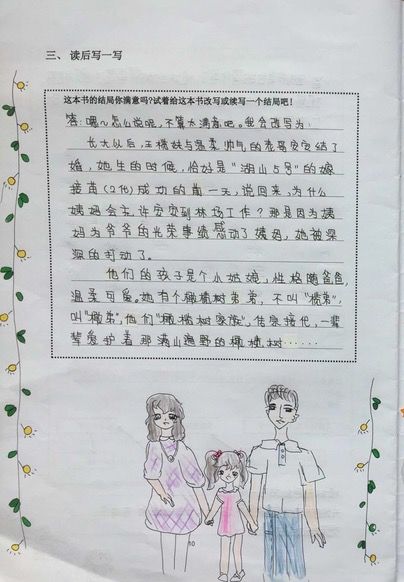 三、 读后写一写
这本书的结局你满意吗?试着给这本书改写或续写一个结局吧!
答:嗯~怎么说呢,不算太满意吧。我会改写为:
长大以后,王橄妹与温柔帅气的表哥安安结了
婚,她生的时候,恰好是“湖山5号”的嫁
接苗(2代)成功的前一天,说回来,为什么
姨妈会允许安安到林场工作?那是因为姨
妈为爷爷的光荣事绩感动了姨妈,她被深
深的打动了。
他们的孩子是个小姑娘,性格随爸爸,
温柔可爱。她有个橄榄树弟弟,不叫“榄弟”,
叫“橄弟”,他们“橄榄树家族”,传宗接代,一辈
辈爱护着那满山遍野的橄榄树……
10